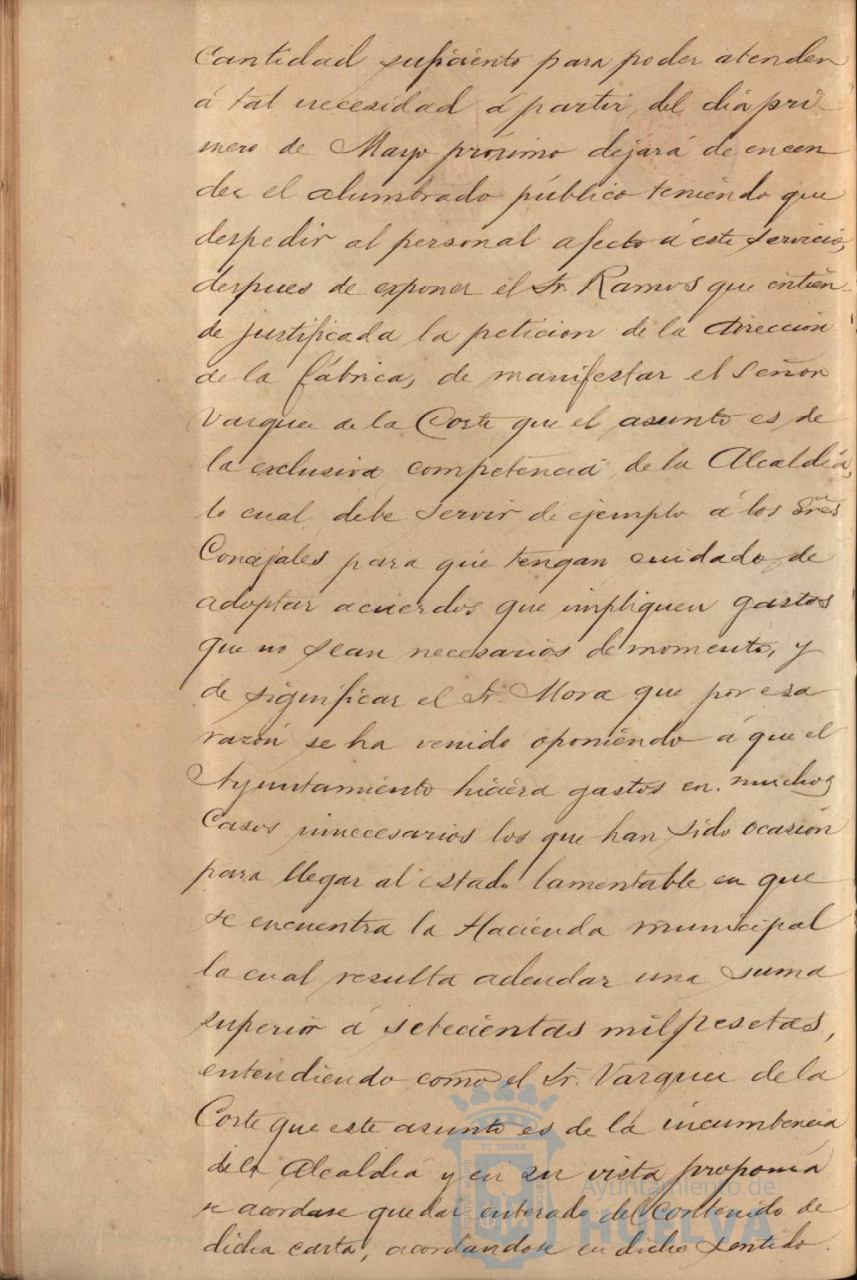 cantidad suficiente para poder atender
á tal necesidad á partir del dia pri-
mero de Mayo próximo dejará de encen
der el alumbrado público teniendo que
despedir al personal afecto á este servicio,
despues de exponer el Sr. Ramos que entien-
de justificada la peticion de la Direccion
de la fábrica, de manifestar el Señor
Vazquez de la Corte que el asunto es de
la exclusiva competencia de la Alcaldia,
lo cual debe servir de ejemplo á los Sres
Concejales para que tengan cuidado de
adoptar acuerdos que impliquen gastos
que no sean necesarios de momento, y
de significar el Sr. Mora que por esa
razón se ha venido oponiendo á que el
Ayuntamiento hiciera gastos en muchos
casos innecesarios los que han sido ocasión
para llegar al estado lamentable en que
se encuentra la Hacienda municipal
la cual resulta adeudar una suma
superior á setecientas mil pesetas,
entendiendo como el Sr. Vazquez de la
Corte que este asunto es de la incumbencia
de la Alcaldia y en su vista proponia
se acordase quedar enterado del contenido de
dicha carta, acordandose en dicho sentido.
Ayuntamiento de
HUELVA